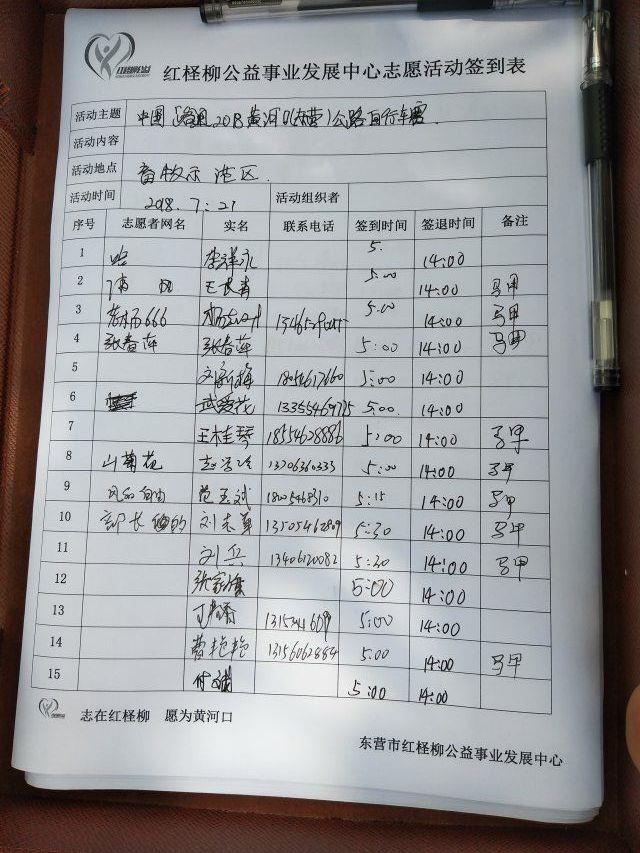 红柽柳公益事业发展中心志愿活动签到表
活动主题 中国 2018黄河口(东营)公路自行车赛
活动内容
活动地点 畜牧示范区
活动时间 2018.7.21 活动组织者
序号 志愿者网名 实名 联系电话 签到时间 签退时间 备注
1 李祥永 5. 14:00
2 王长青 5:00 14:00 马甲
3 老杨666 5:00 14:00 马甲
4 张春萍 张春萍 5:00 14:00 马甲
5 刘新梅 18054617660 5:00 14:00
6 武爱花 13355469775 5:00 14:00
7 王桂琴 18554628886 5:00 14:00 马甲
8 山菊花 13706360333 5:00 14:00 马甲
9 风的自由 范玉斌 18005468310 5:15 14:00 马甲
10 部长 刘志军 13505462809 5:30 14:00 马甲
11 刘兵 13406120082 5:20 14:00 马甲
12 张家 5:00 14:00
13 5:00 14:00
14 曹艳艳 13156062884 5:00 14:00 马甲
15 付 5:00 14:00
志在红柽柳 愿为黄河口
东营市红柽柳公益事业发展中心